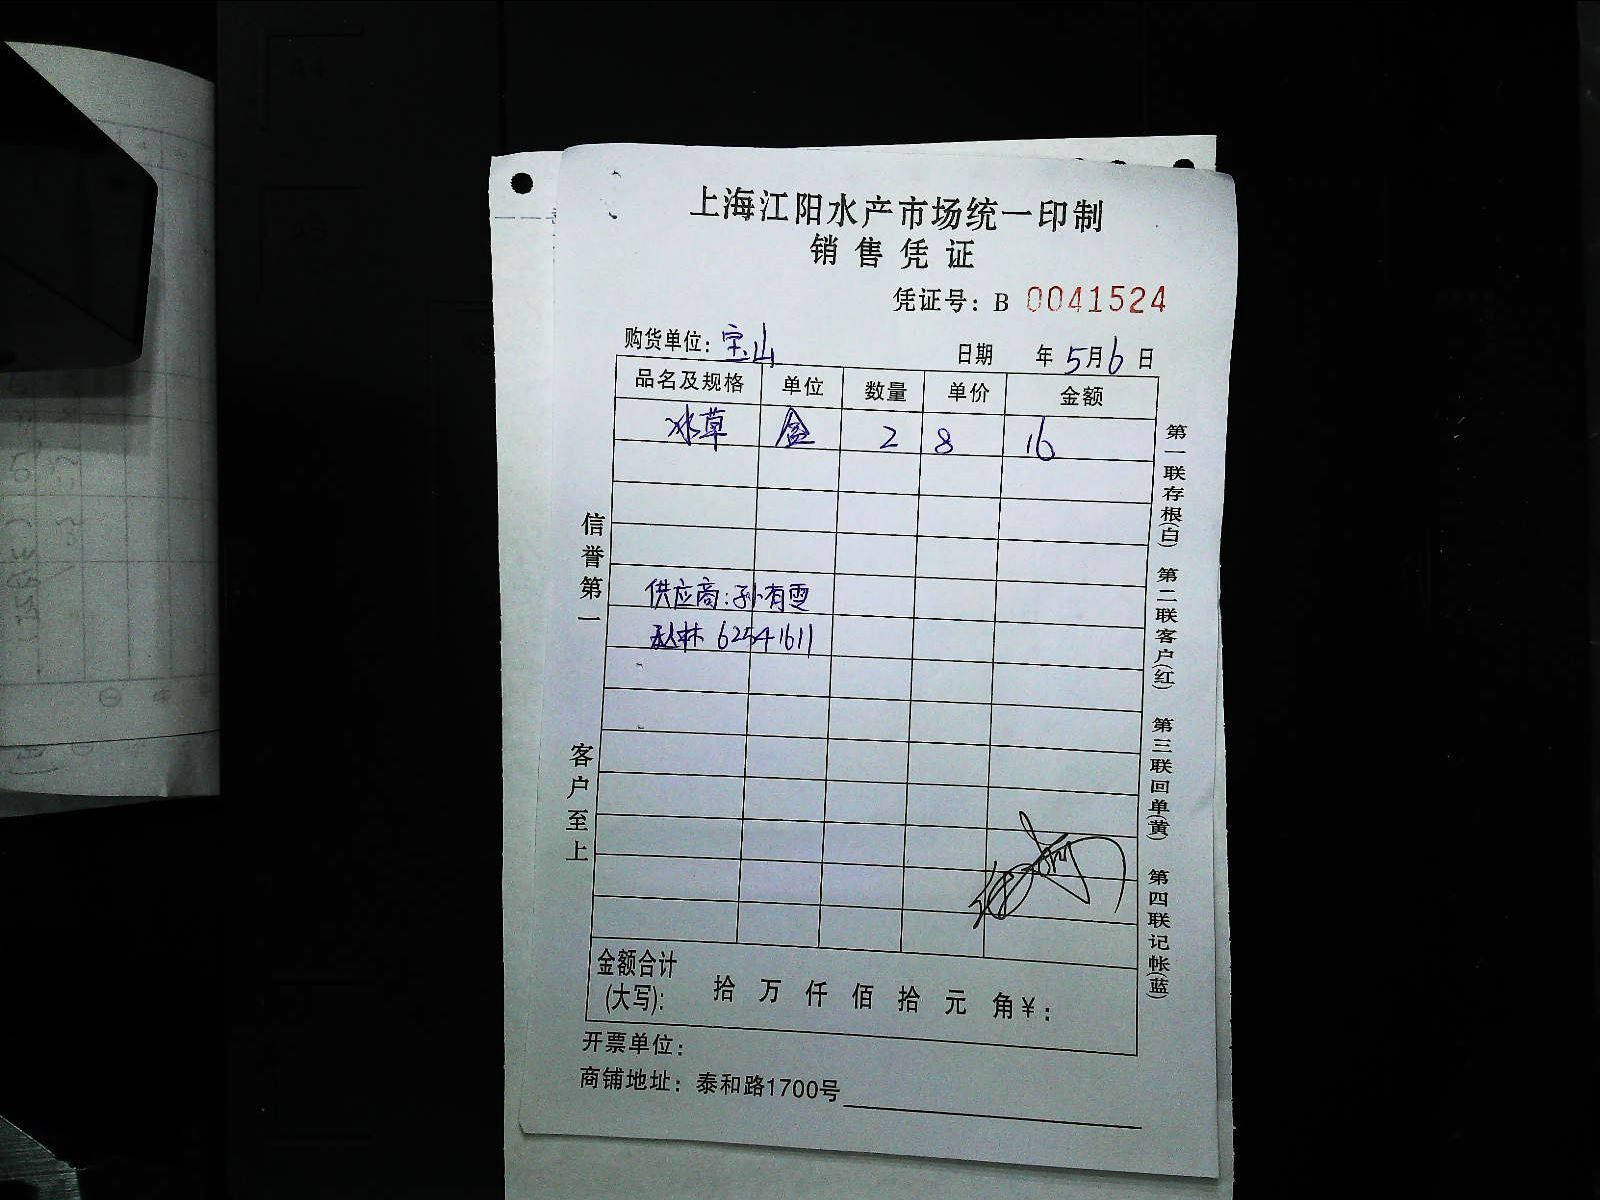 上海江阳水产市场统一印制
销售凭证
凭证号: B 0041524
购货单位: 宝山 日期 年5月6日
品名及规格 单位 数量 单价 金额
冰草 盒 2 8 16
供应商:孙有雯
62541611
金额合计(大写): 拾 万 仟 佰 拾 元 角 ¥:
开票单位:
商铺地址: 泰和路1700号
信誉第一
客户至上
第一联存根(白) 第二联客户(红) 第三联回单(黄) 第四联记帐(蓝)